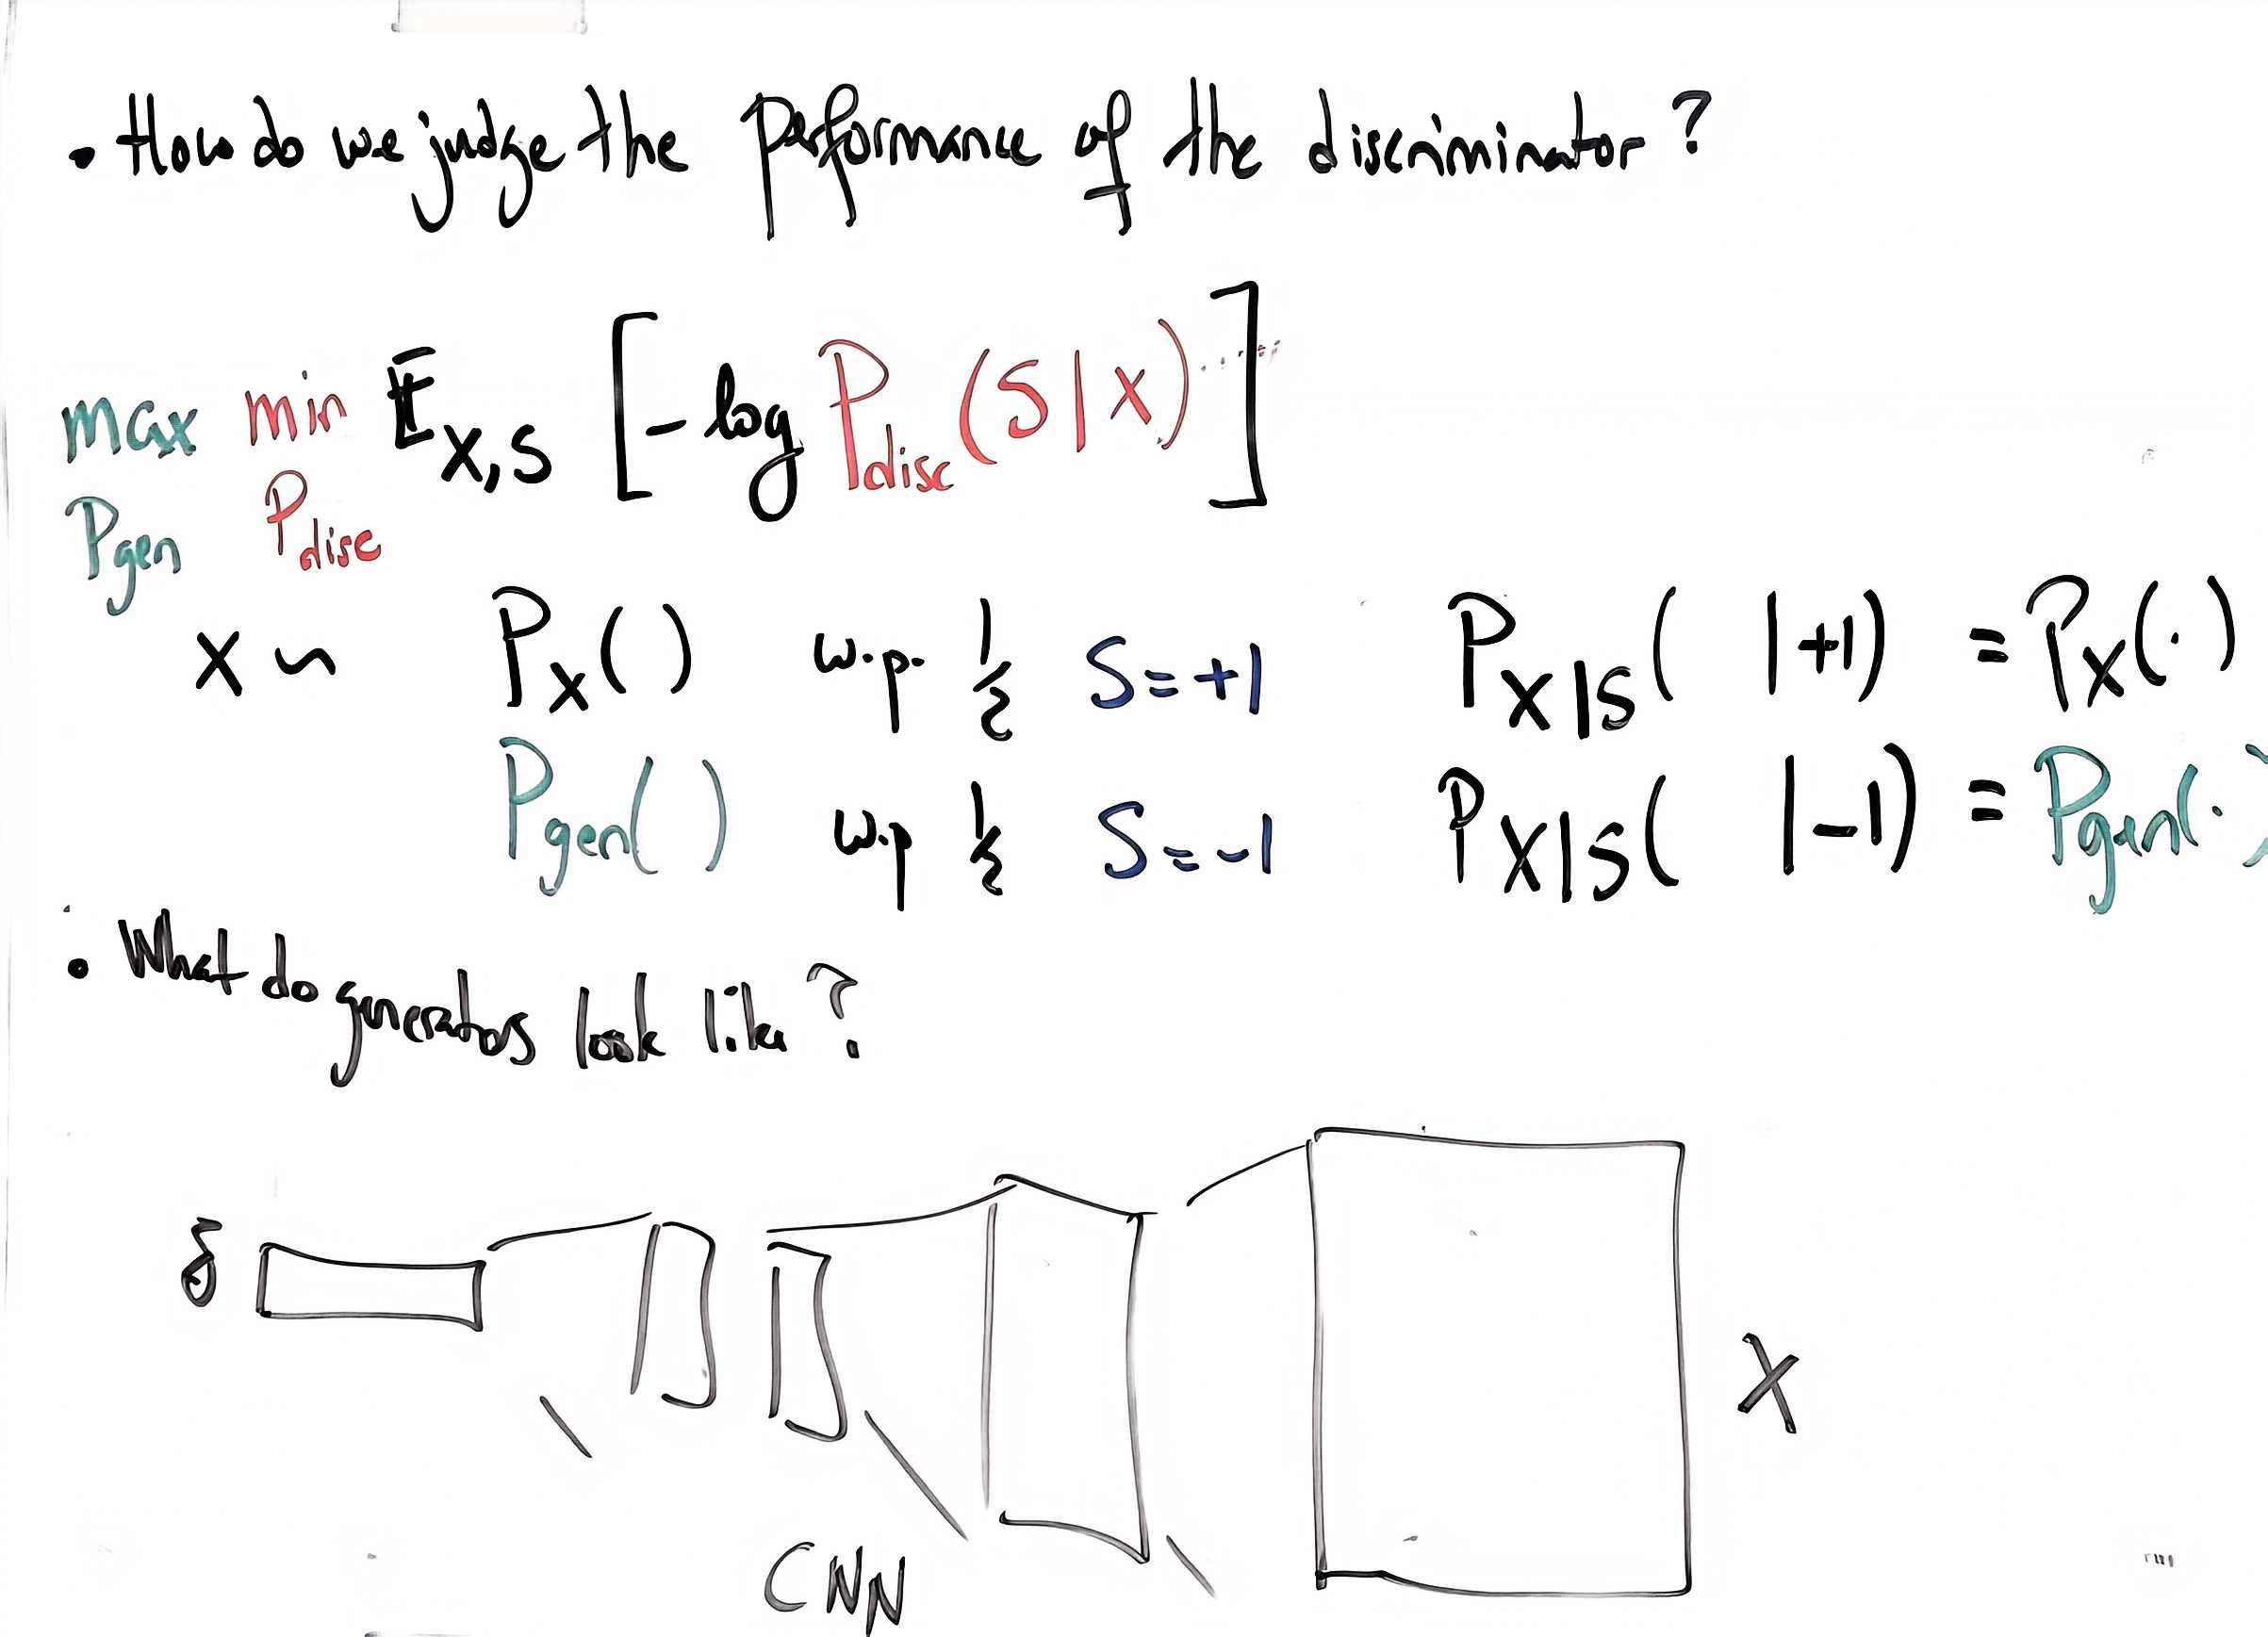 • How do we judge the performance of the discriminator?
max min E_{X,S} [-log P_disc(S|X)]
P_gen P_disc
X ~ P_X( ) w.p. 1/2 S=+1 P_{X|S}( |+1) = P_X(·)
P_gen( ) w.p 1/2 S=-1 P_{X|S}( |-1) = P_gen(·)
• What do generators look like?
X
CNN